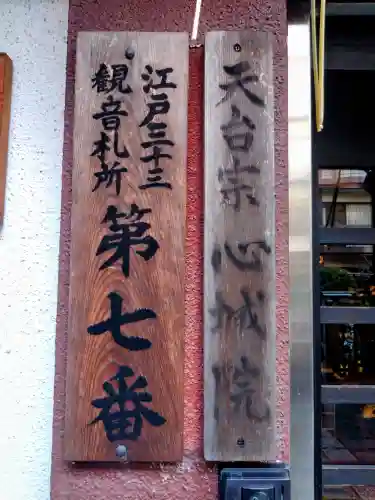 江戸三十三
観音札所
第七番
天台宗心城院